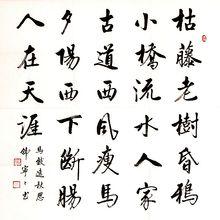 枯藤老樹昏鴉
小橋流水人家
古道西風瘦馬
夕陽西下斷腸
人在天涯
馬致遠秋思
書